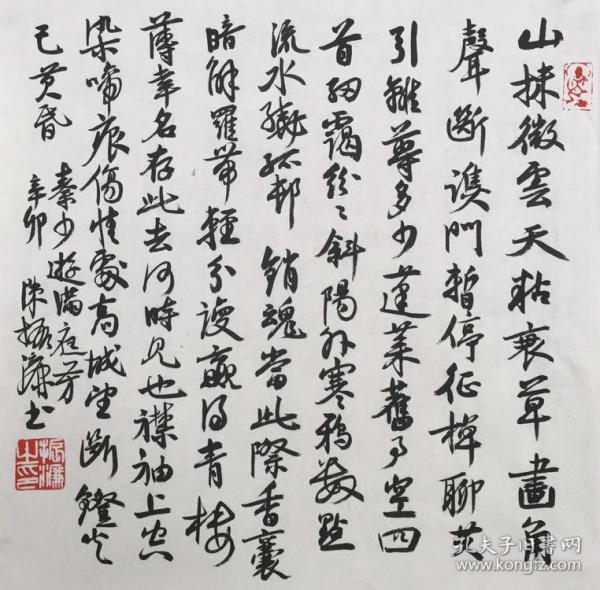 山抹微雲天粘衰草畫角
聲斷譙門暫停征棹聊共
引離尊多少蓬萊舊事空回
首煙靄紛紛斜陽外寒鴉數點
流水繞孤邨銷魂當此際香囊
暗解羅帶輕分謾贏得青樓
薄幸名存此去何時見也襟袖上空
染啼痕傷情處高城望斷鐙火
已黃昏
秦少游滿庭芳
辛卯 陳振濂書
振濂之印
孔夫子旧书网
www.kongfz.com